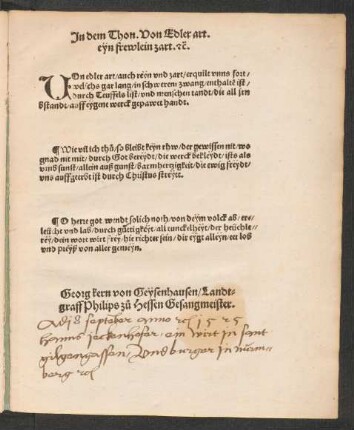 In dem Thon. Von Edler art.
eyn frewlein zart. ꝛc̄.
VOn edler art/auch reyn vnd zart/erquilt vnns fort/
welchs gar lang/in schwerem zwang/enthalt ist/
durch Teuffels list/vnd menschen tandt/die all jrn
bstandt/auff eygene werck gepawet handt.
¶ Wie vil ich thů/so bleibt keyn rhw/der gewissen mit/wo
gnad nit mit/durch Got bereydt/die werck bekleydt/ists als
vmb sunst/allein auß gunst/barmhertzigkeit/die ewig freydt/
vns auffgeerbt ist durch Christus streyt.
¶ O herre got wendt solich noth/von deym volck ab/er-
leücht vnd lab/durch güttigkeyt/all tunckelheyt/der heüchle-
rey/dein wort wirt frey/hie richter sein/die eygt alleyn/eer lob
vnd preyß von aller gemeyn.
Georg kern von Geysenhausen/Landt-
graff Philips zů Hessen Gesangmeister.
Adj 8 September anno 1525
Hanns ein wirt in sant
gilgengassen/ Vnd burger in nurm-
berg